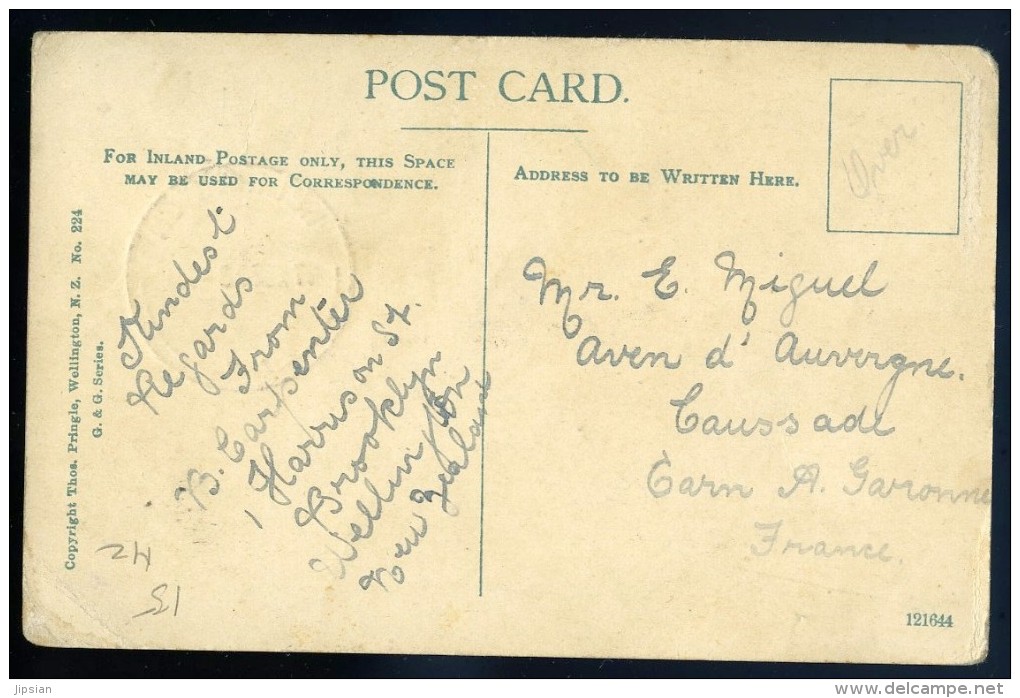 POST CARD.
FOR INLAND POSTAGE ONLY, THIS SPACE
MAY BE USED FOR CORRESPONDENCE.
ADDRESS TO BE WRITTEN HERE.
Over.
Copyright Thos. Pringle, Wellington, N. Z. No. 224
G. & G. Series.
Kindest
Regards
From
B. Carpenter
1 Harrison St.
Brooklyn
Wellington
New Zealand
Mr. E. Miguel
Aven d' Auvergne.
Caussade
Tarn A. Garonne
France.
NZ
15
121644
jipsian
delcampe.net